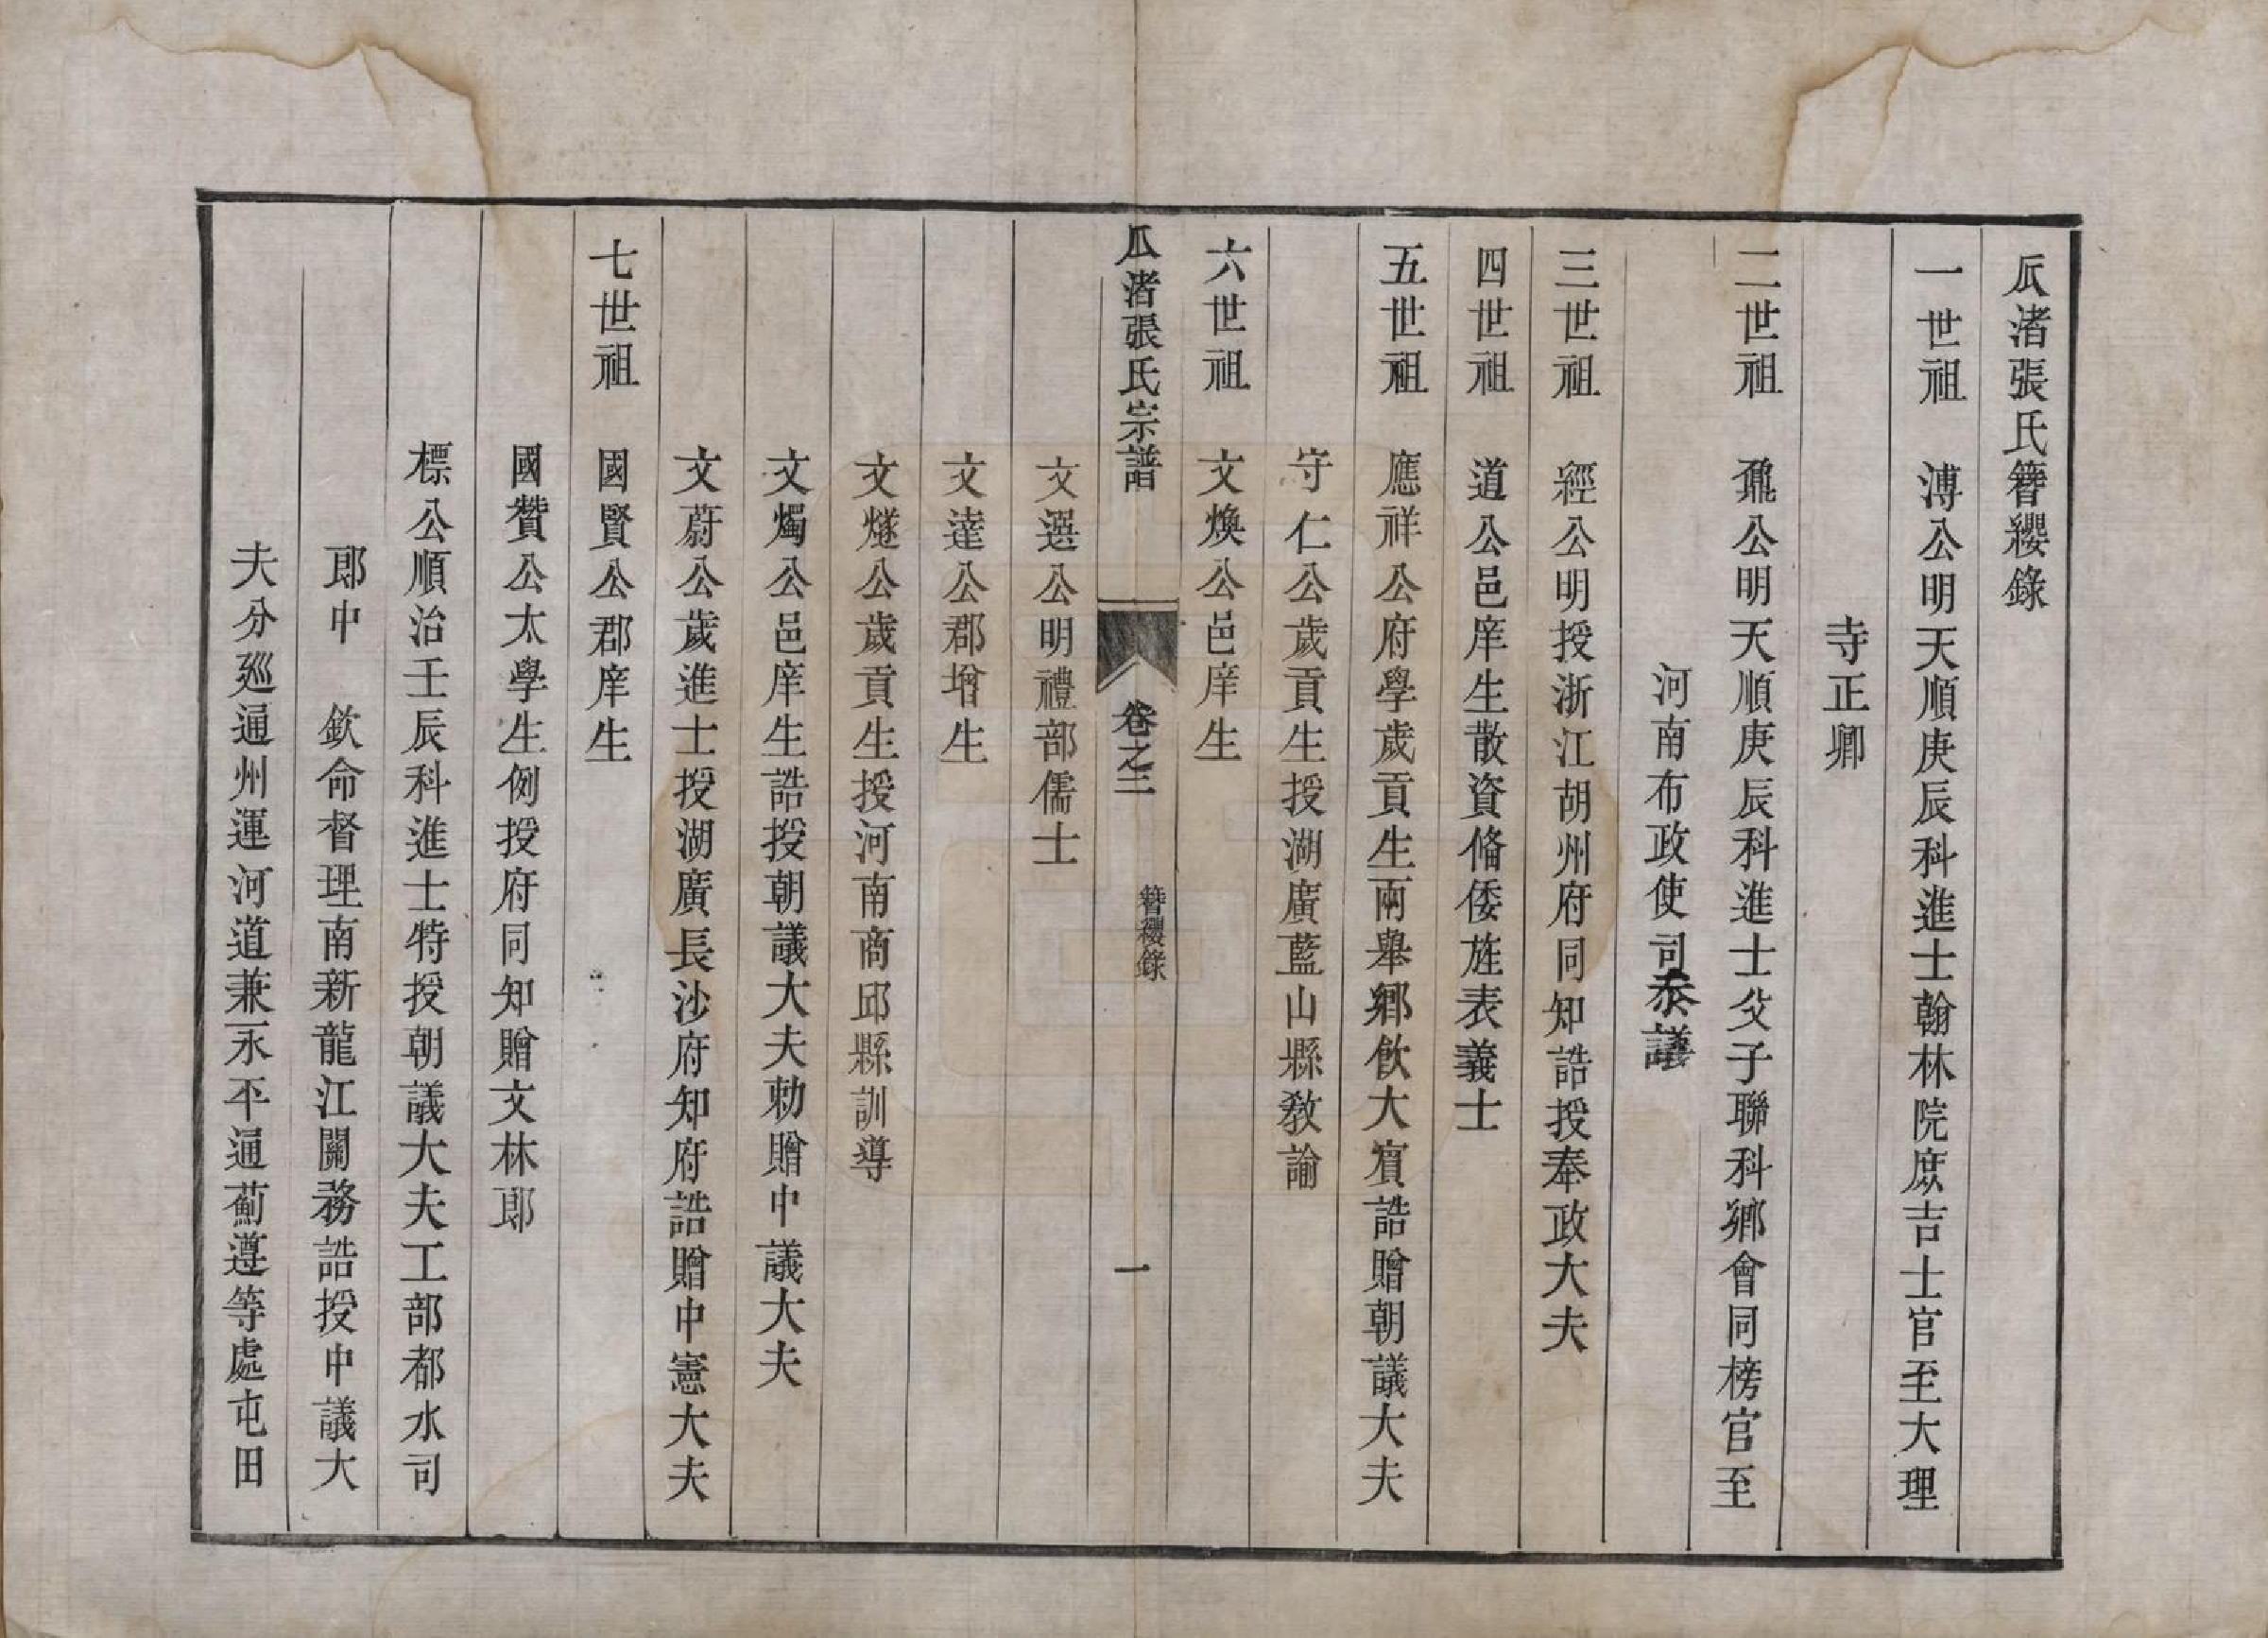 瓜渚張氏簪纓錄
一世祖　溥公明天順庚辰科進士翰林院庶吉士官至大理
寺正卿
二世祖　鼐公明天順庚辰科進士父子聯科鄉會同榜官至
河南布政使司叅議
三世祖　經公明授浙江胡州府同知誥授奉政大夫
四世祖　道公邑庠生散資偹倭旌表義士
五世祖　應祥公府學歲貢生兩舉鄉飲大賓誥贈朝議大夫
守仁公歲貢生授湖廣藍山縣敎諭
六世祖　文煥公邑庠生
瓜渚張氏宗譜　卷之三　簪纓錄　一
文選公明禮部儒士
文達公郡增生
文燧公歲貢生授河南商邱縣訓導
文燭公邑庠生誥授朝議大夫勅贈中議大夫
文蔚公歲進士授湖廣長沙府知府誥贈中憲大夫
七世祖　國賢公郡庠生
國贊公太學生例授府同知贈文林郎
標公順治壬辰科進士特授朝議大夫工部都水司
郎中　欽命督理南新龍江關務誥授中議大
夫分廵通州運河道兼永平通薊遵等處屯田